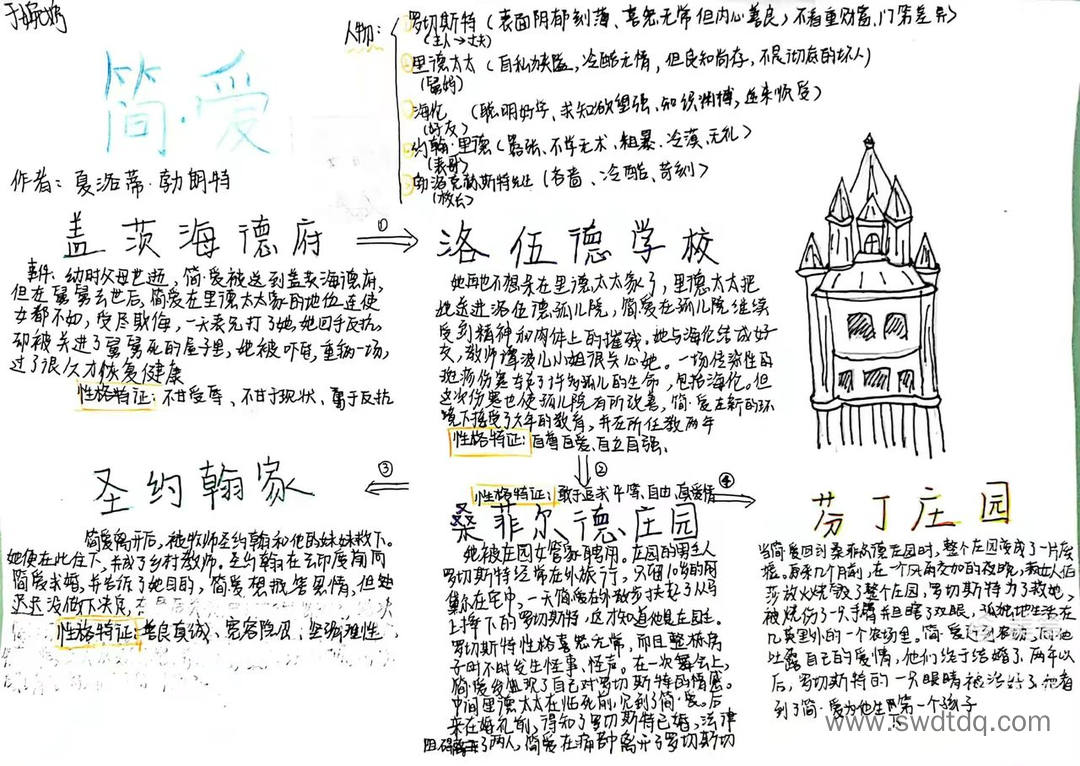 简·爱
作者：夏洛蒂·勃朗特
人物：
罗切斯特（表面阴郁刻薄、喜怒无常但内心善良）不看重财富、门第差异）
（主人→丈夫）
里德太太（自私狭隘，冷酷无情，但良知尚存，不是彻底的坏人）
（舅妈）
海伦（聪明好学、求知欲望强、知识渊博，逆来顺受）
（好友）
约翰·里德（嚣张、不学无术、粗暴、冷漠、无礼）
（表哥）
（吝啬、冷酷、苛刻）
（校长）
盖茨海德府
①
事件：幼时父母世逝，简·爱被送到盖茨海德府，
但在舅舅去世后，简爱在里德太太家的地位连使
女都不如，受尽欺侮，一天表兄打了她，她回手反抗，
却被关进了舅舅死的屋子里，她被吓昏，重病一场，
过了很久才恢复健康
性格特征：不甘受辱、不甘于现状、勇于反抗
洛伍德学校
她再也不想呆在里德太太家了，里德太太把
她送进洛伍德孤儿院，简爱在孤儿院继续
受到精神和肉体上的摧残，她与海伦结成好
友，教师谭波儿小姐很关心她。一场传染性的
斑疹伤寒夺去了许多孤儿的生命，包括海伦。但
这次伤寒也使孤儿院有所改善，简·爱在新的环
境下接受了六年的教育，并在所任教两年
性格特征：自尊自爱、自立自强、
②
性格特征：敢于追求平等、自由、真爱情
桑菲尔德庄园
她被庄园女管家聘用。庄园的男主人
罗切斯特经常在外旅行，只留10岁的阿
黛尔在宅中，一天简爱在外散步扶起了从马
上摔下的罗切斯特，这才知道他是庄园主。
罗切斯特性格喜怒无常，而且整栋房
子时不时发生怪事、怪声。在一次舞会上，
简·爱发现了自己对罗切斯特的情感。
中间里德太太在临死前，见到了简·爱。后
来在婚礼前，得知了罗切斯特已婚，法律
阻碍了两人，简爱在痛中离开了罗切斯切
③
圣约翰家
简爱离开后，被牧师圣约翰和他的妹妹救下。
她便在此住下，并成了乡村教师。圣约翰在去印度前向
简爱求婚，并告诉了她目的，简爱想报答恩情，但她
迟迟没做下决定，
性格特征：善良真诚、宽容隐忍、坚强理性
④
芬丁庄园
当简爱回到桑菲尔德庄园时，整个庄园变成了一片废
墟。原来几个月前，在一个风雨交加的夜晚，疯女人伯
莎放火烧毁了整个庄园，罗切斯特为了救她，
被烧伤了一只手臂并且瞎了双眼，孤独地生活在
几英里外的一个农场里。简·爱赶到农场，向他
吐露自己的爱情，他们终于结婚了，两年以
后，罗切斯特的一只眼睛被治好了，他看
到了简·爱为他生的第一个孩子
www.swdtdq.com